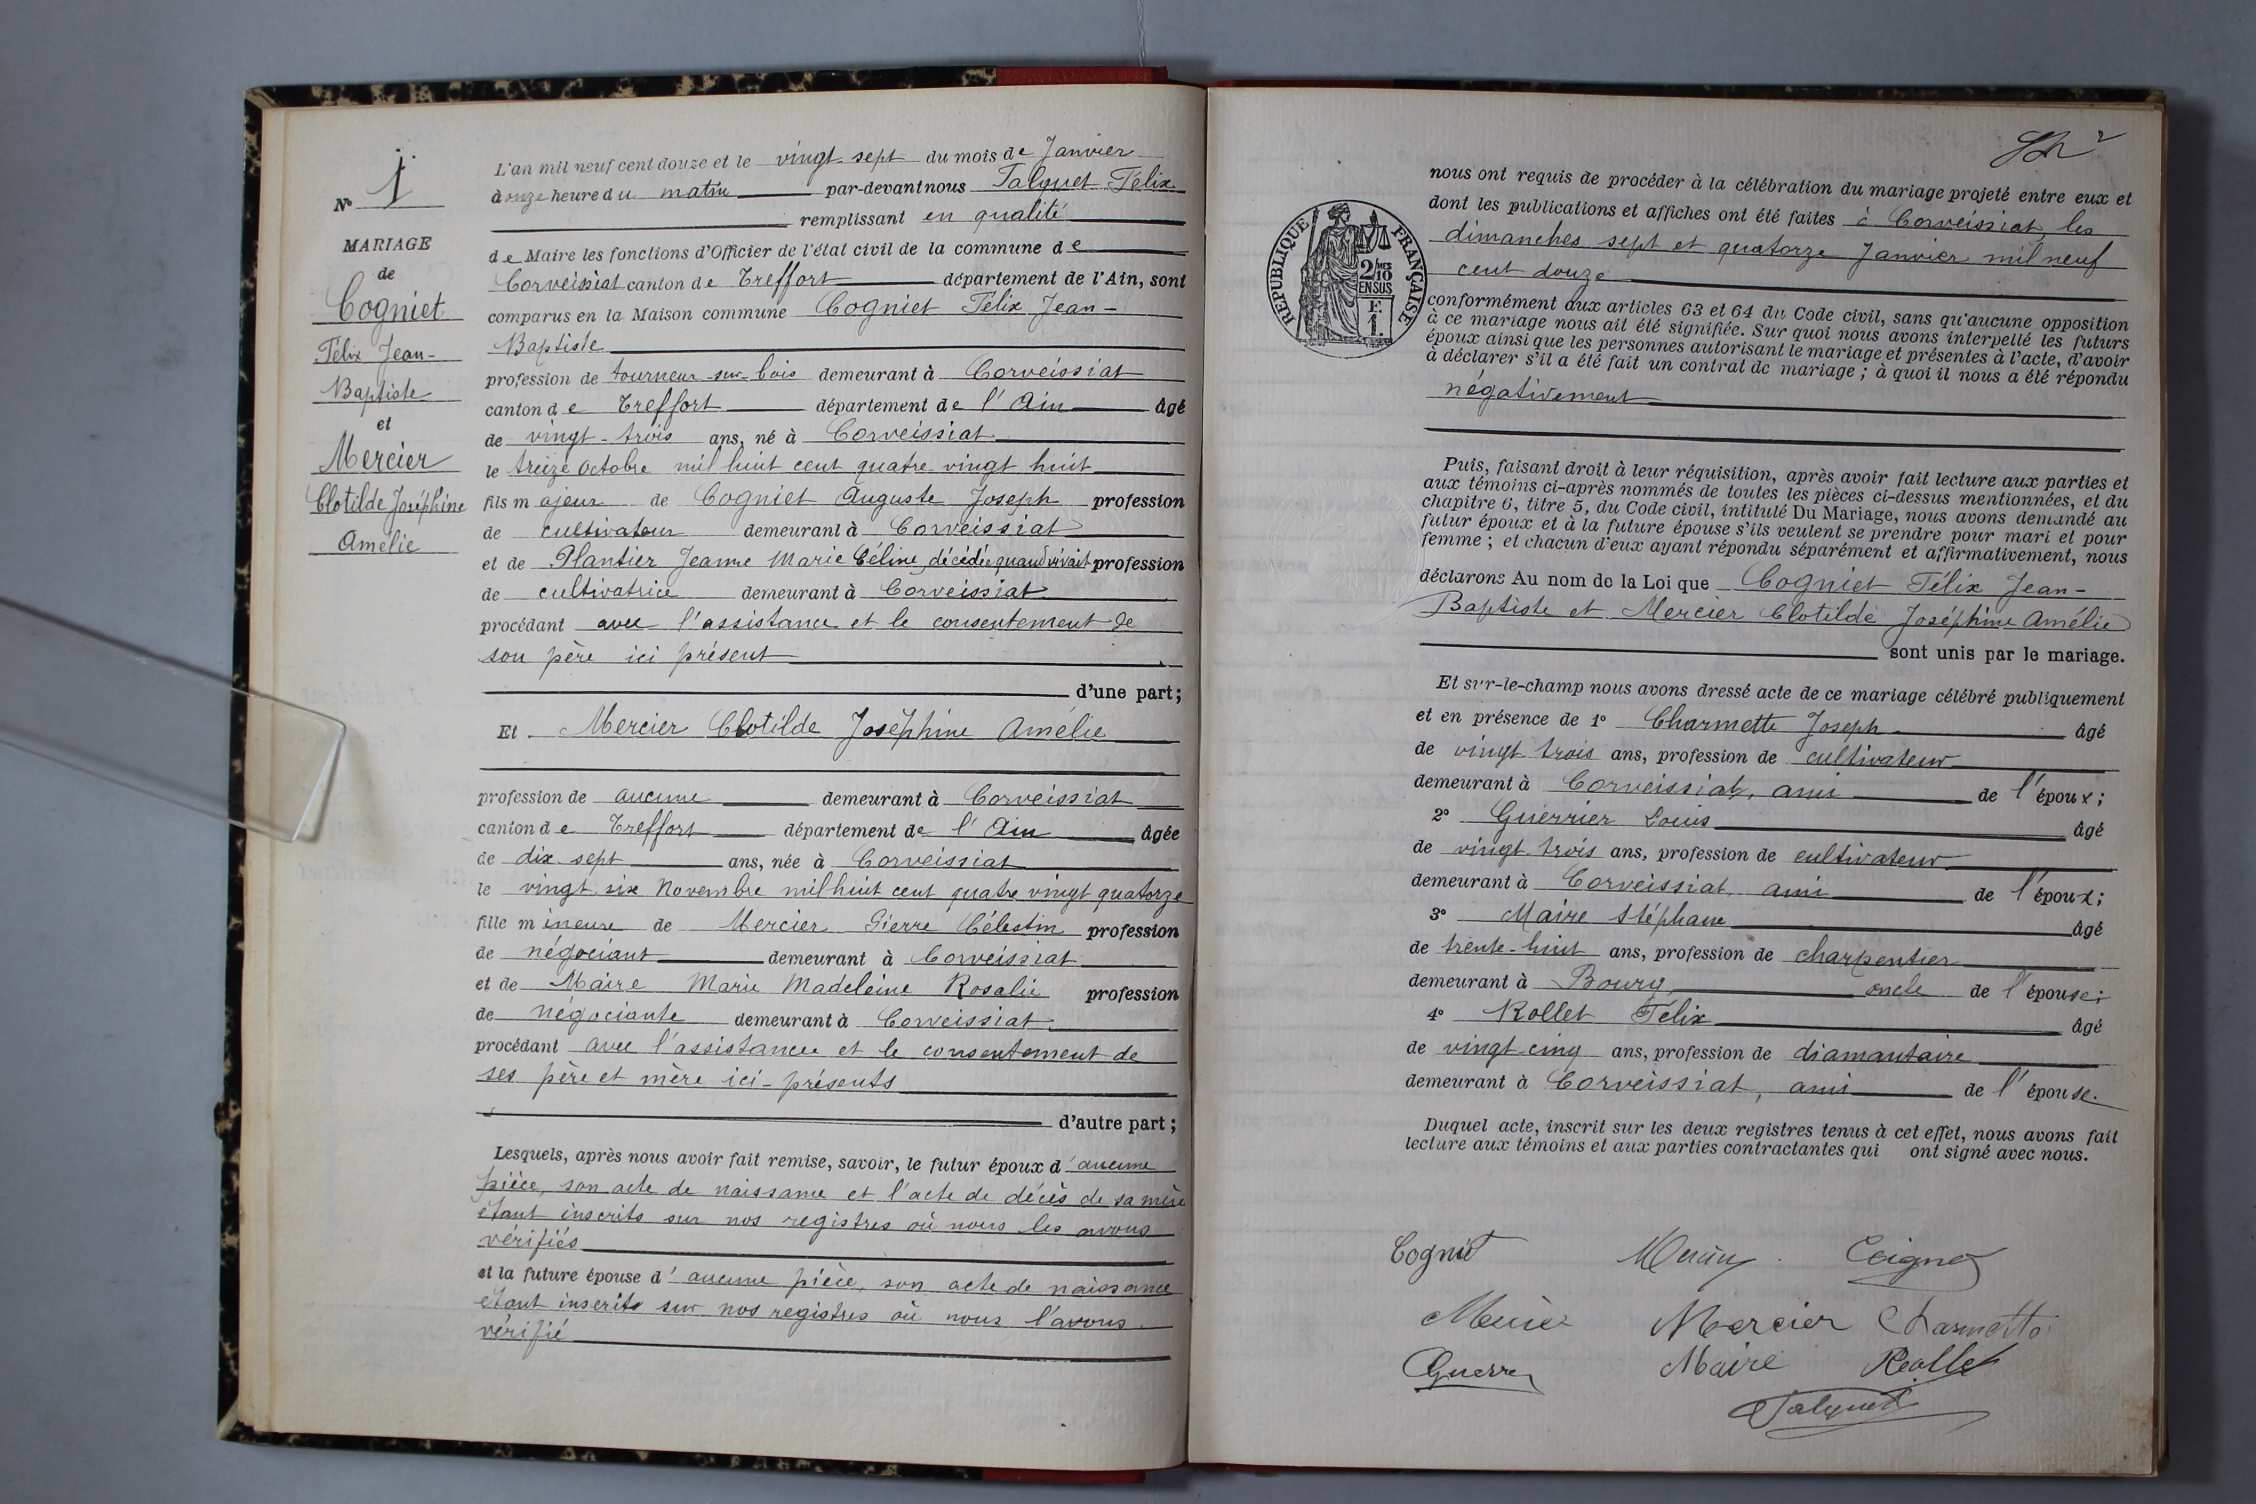 N° 1
MARIAGE
de
Cogniet
Félix Jean-
Baptiste
et
Mercier
Clotilde Joséphine
Amélie
L'an mil neuf cent douze et le vingt-sept du mois de Janvier
à onze heure du matin par-devant nous Talguet Félix
remplissant en qualité
de Maire les fonctions d'Officier de l'état civil de la commune de
Corveissiat canton de Treffort département de l'Ain, sont
comparus en la Maison commune Cogniet Félix Jean-
Baptiste
profession de tourneur-sur-bois demeurant à Corveissiat
canton de Treffort département de l'Ain âgé
de vingt-trois ans, né à Corveissiat
le treize octobre mil huit cent quatre vingt huit
fils majeur de Cogniet Auguste Joseph profession
de cultivateur demeurant à Corveissiat
et de Plantier Jeanne Marie Céline, décédée quand vivait profession
de cultivatrice demeurant à Corveissiat
procédant avec l'assistance et le consentement de
son père ici présent
d'une part;
Et Mercier Clotilde Joséphine Amélie
profession de aucune demeurant à Corveissiat
canton de Treffort département de l'Ain âgée
de dix-sept ans, née à Corveissiat
le vingt six Novembre mil huit cent quatre vingt quatorze
fille mineure de Mercier Pierre Célestin profession
de négociant demeurant à Corveissiat
et de Maire Marie Madeleine Rosalie profession
de négociante demeurant à Corveissiat
procédant avec l'assistance et le consentement de
ses père et mère ici-présents
d'autre part;
Lesquels, après nous avoir fait remise, savoir, le futur époux d'aucune
pièce, son acte de naissance et l'acte de décès de sa mère
étant inscrits sur nos registres où nous les avons
vérifiés
et la future épouse d'aucune pièce, son acte de naissance
étant inscrits sur nos registres où nous l'avons
vérifié
2
RÉPUBLIQUE FRANÇAISE
2/10 EN SUS
F. 1.
nous ont requis de procéder à la célébration du mariage projeté entre eux et
dont les publications et affiches ont été faites à Corveissiat les
dimanches sept et quatorze Janvier mil neuf
cent douze
conformément aux articles 63 et 64 du Code civil, sans qu'aucune opposition
à ce mariage nous ait été signifiée. Sur quoi nous avons interpellé les futurs
époux ainsi que les personnes autorisant le mariage et présentes à l'acte, d'avoir
à déclarer s'il a été fait un contrat de mariage; à quoi il nous a été répondu
négativement
Puis, faisant droit à leur réquisition, après avoir fait lecture aux parties et
aux témoins ci-après nommés de toutes les pièces ci-dessus mentionnées, et du
chapitre 6, titre 5, du Code civil, intitulé Du Mariage, nous avons demandé au
futur époux et à la future épouse s'ils veulent se prendre pour mari et pour
femme; et chacun d'eux ayant répondu séparément et affirmativement, nous
déclarons Au nom de la Loi que Cogniet Félix Jean-
Baptiste et Mercier Clotilde Joséphine Amélie
sont unis par le mariage.
Et sur-le-champ nous avons dressé acte de ce mariage célébré publiquement
et en présence de 1° Charmette Joseph âgé
de vingt trois ans, profession de cultivateur
demeurant à Corveissiat, ami de l'époux;
2° Guerrier Louis âgé
de vingt-trois ans, profession de cultivateur
demeurant à Corveissiat, ami de l'époux;
3° Maire Stéphane âgé
de trente-huit ans, profession de charpentier
demeurant à Bourg, oncle de l'épouse;
4° Rollet Félix âgé
de vingt-cinq ans, profession de diamantaire
demeurant à Corveissiat, ami de l'épouse.
Duquel acte, inscrit sur les deux registres tenus à cet effet, nous avons fait
lecture aux témoins et aux parties contractantes qui ont signé avec nous.
Cogniet
Mercier Charmette
Maire Rollet
Talguet